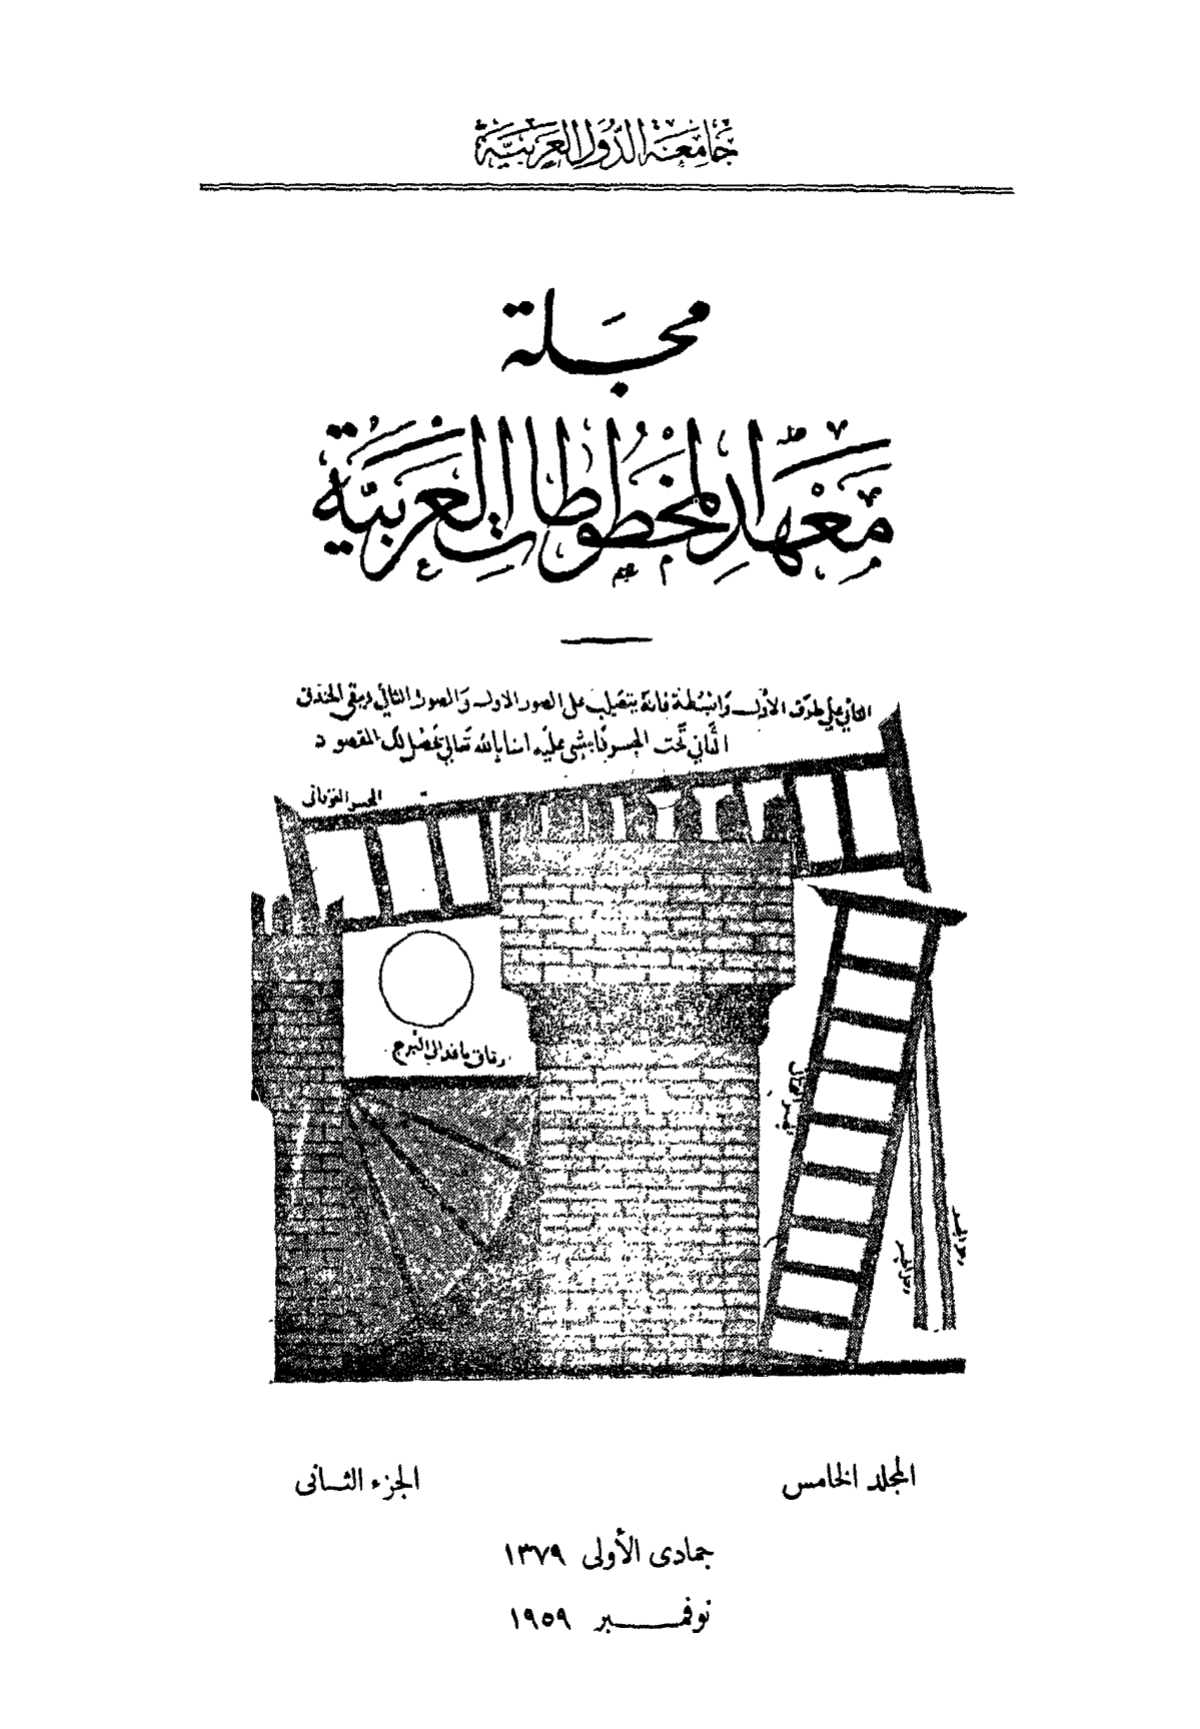 جامعة الدول العربية
مجلة
معهد المخطوطات العربية
الثاني على طرف الأول وانبسطة فانه يتصل على الصور الاول والصور الثاني ويبقى الخندق
الثاني تحت الجسر فامشى عليه امنا بالله تعالى يحصل لك المقصود
الجسر الفوقانى
زقاق نافد الى البرج
المجلد الخامس
الجزء الثانى
جمادى الأولى ١٣٧٩
نوفمبر ١٩٥٩